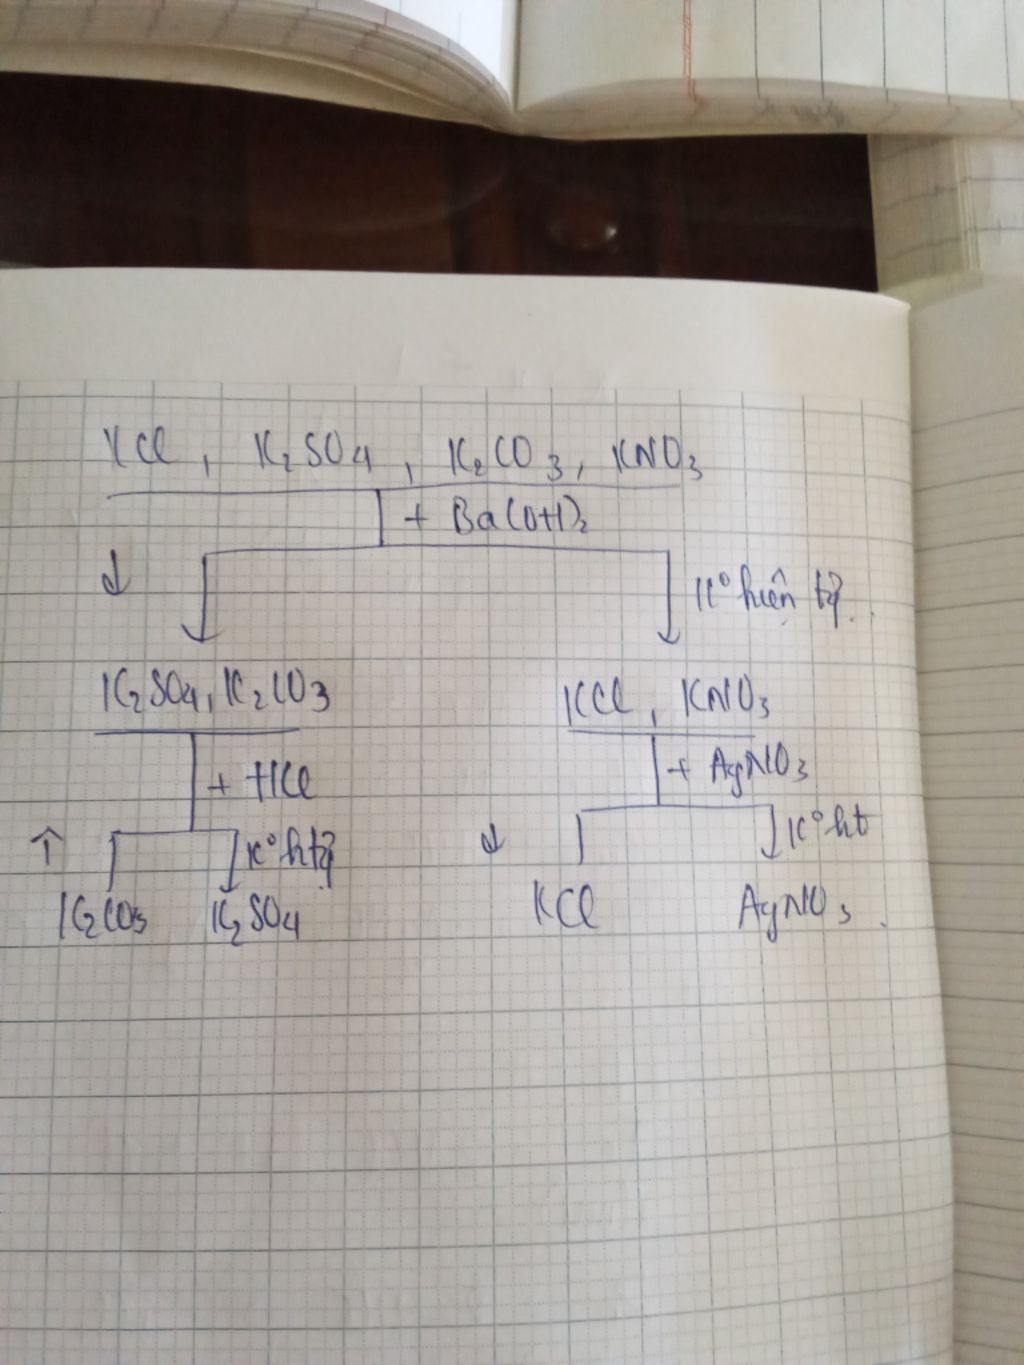 KCl, K₂SO₄, K₂CO₃, KNO₃
+ Ba(OH)₂
↓ K° hiện tg̃.
K₂SO₄, K₂CO₃ KCl, KNO₃
+ HCl + AgNO₃
↑ K° htg̃ ↓ K° ht
K₂CO₃ K₂SO₄ KCl AgNO₃.